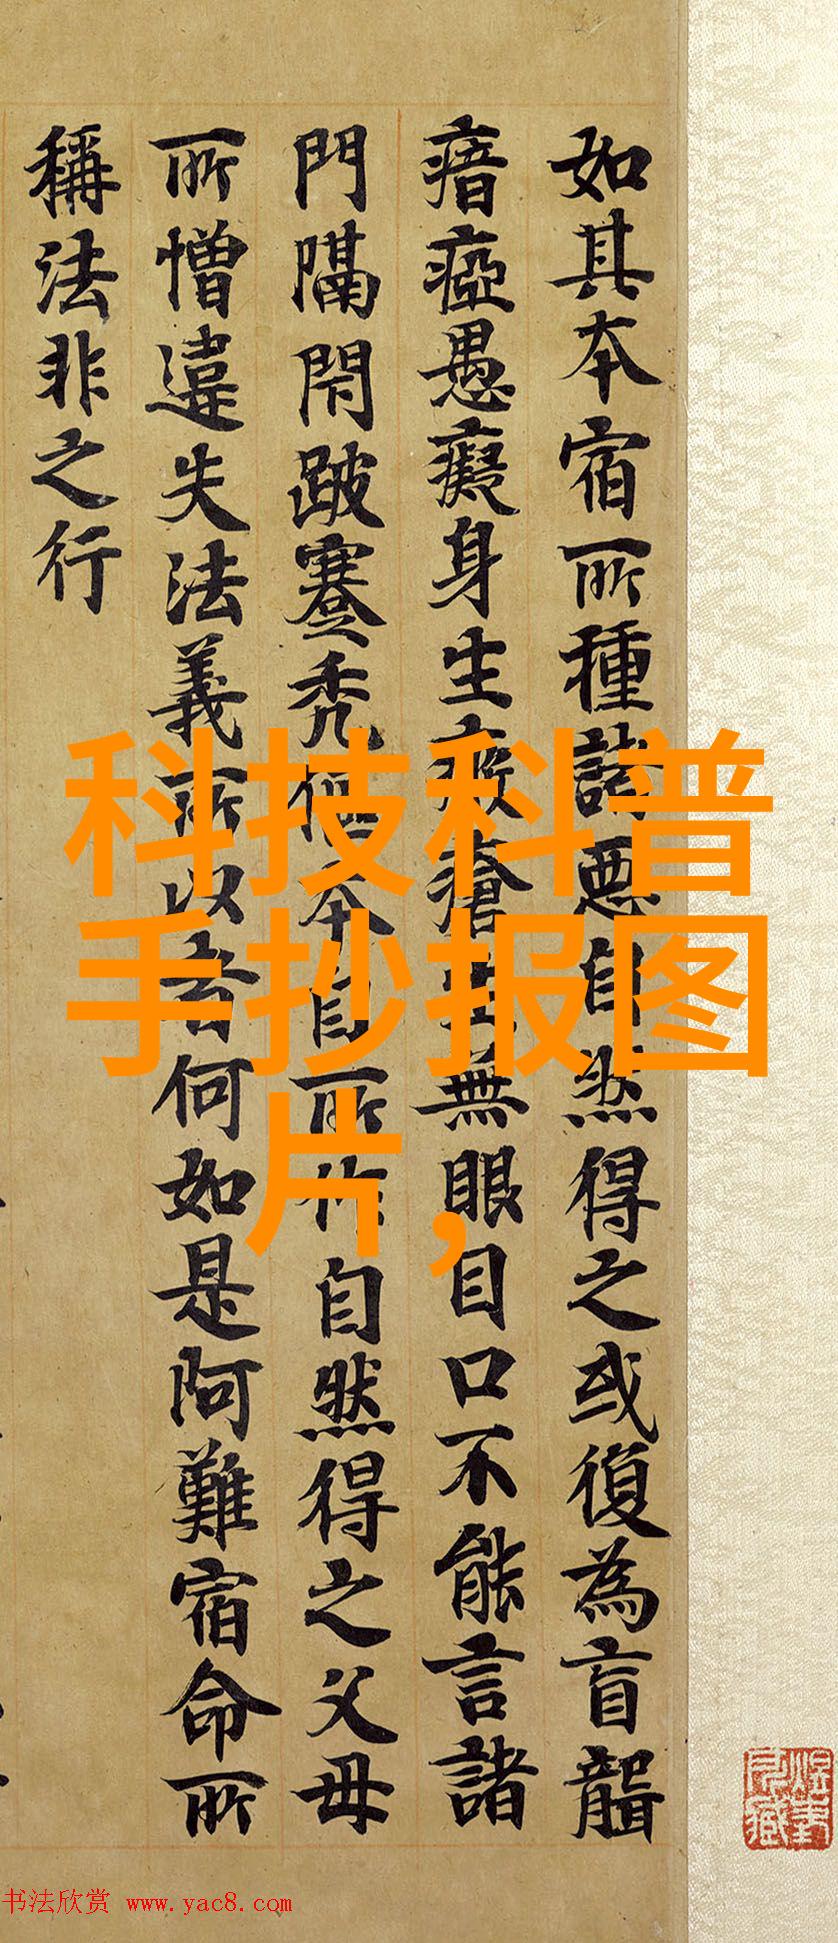 如其本宿所種諸惡自然得之或復為盲聾
瘖瘂愚癡身生瘡無眼目口不能言諸
門隔閇跛蹇禿僂本自所作自然得之父母
所憎違失法義所以者何如是阿難宿命所
稱法非之行
科技科普
手抄报图
片，
书法欣赏 www.yac8.com